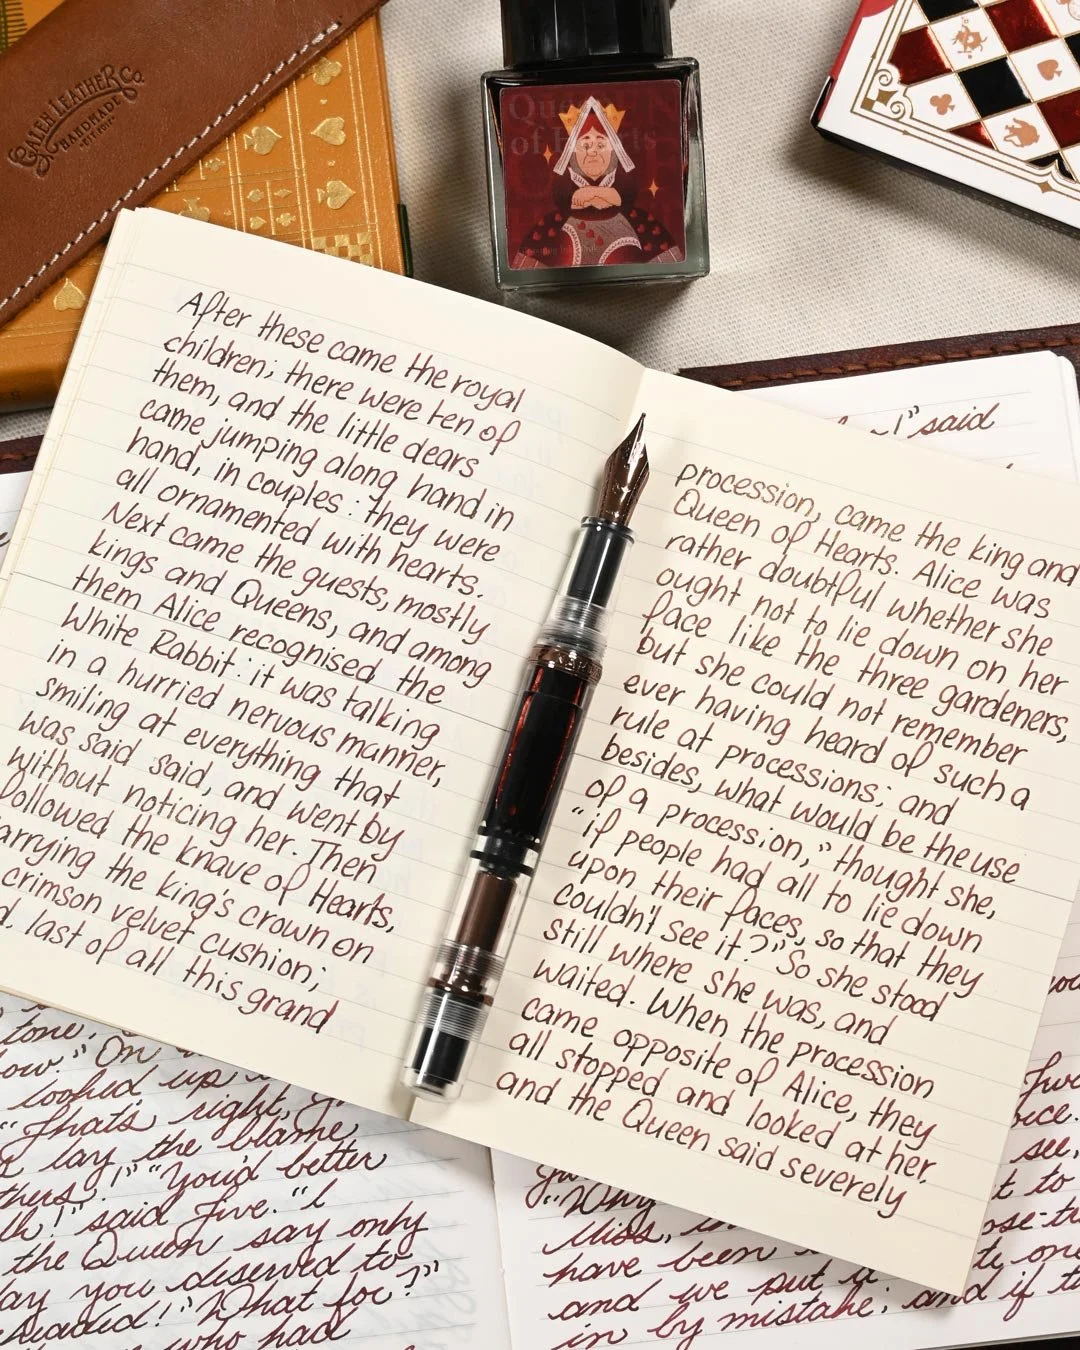 GALEN LEATHER CO.
HANDMADE
Queen
of Hearts
After these came the royal
children; there were ten of
them, and the little dears
came jumping along hand in
hand, in couples: they were
all ornamented with hearts.
Next came the guests, mostly
kings and Queens, and among
them Alice recognised the
White Rabbit: it was talking
in a hurried nervous manner,
smiling at everything that
was said said, and went by
without noticing her. Then
followed the knave of Hearts,
arrying the king's crown on
crimson velvet cushion;
d, last of all this grand
procession, came the king and
Queen of Hearts. Alice was
rather doubtful whether she
ought not to lie down on her
face like the three gardeners,
but she could not remember
ever having heard of such a
rule at processions; and
besides, what would be the use
of a procession," thought she,
"if people had all to lie down
upon their faces, so that they
couldn't see it?" So she stood
still where she was, and
waited. When the procession
came opposite of Alice, they
all stopped and looked at her.
and the Queen said severely
!" said
tone.
ow." On
looked up
"That's right,
lay the blame
thers!" "You'd better
lk!" said Five. "I
the Queen say only
ay you deserved to
headed!" "What for?"
who had
"Why
Miss,
have been
and we put a
in by mistake; and if t
Five
oice.
see,
t to
ose-t